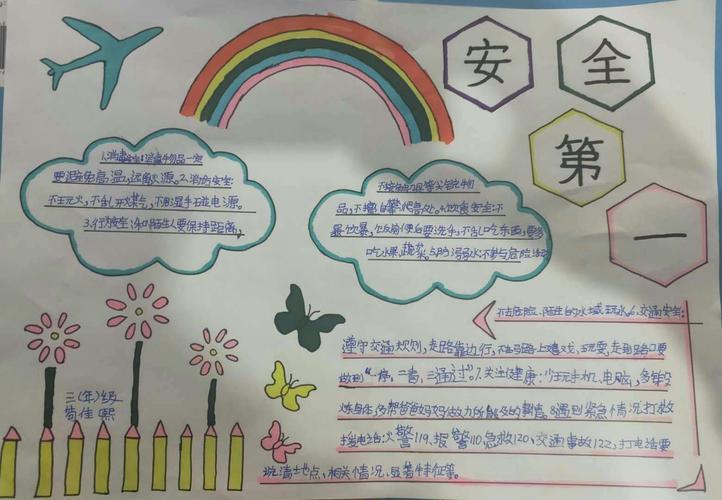 安全
第
一
1.消毒安全:消毒物品一定
要避免高温,远离火源。2.消防安全:
不玩火,不乱开燃气,不用湿手碰电源。
3.行为安全:和陌生人要保持距离,
不接触
品,不攀爬高处。4.饮食安全:不
暴饮暴,饭前便后要洗手,不乱吃东西,要多
吃水果,蔬菜。5.防溺水:不参与危险
不去危险、陌生的水域玩水。6.交通安全:
遵守交通规则,走路靠边行,不在马路上嬉戏、玩耍,走到路口要
做到“一停,二看,三通过”。7.关注健康:少玩手机、电脑,多锻
炼身体,多帮爸爸妈妈做力所能及的事情。8.遇到紧急情况打救
援电话:火警119,报警110,急救120,交通事故122,打电话要
说清土地点、相关情况、显著特征等。
三(年)级
苟佳熙